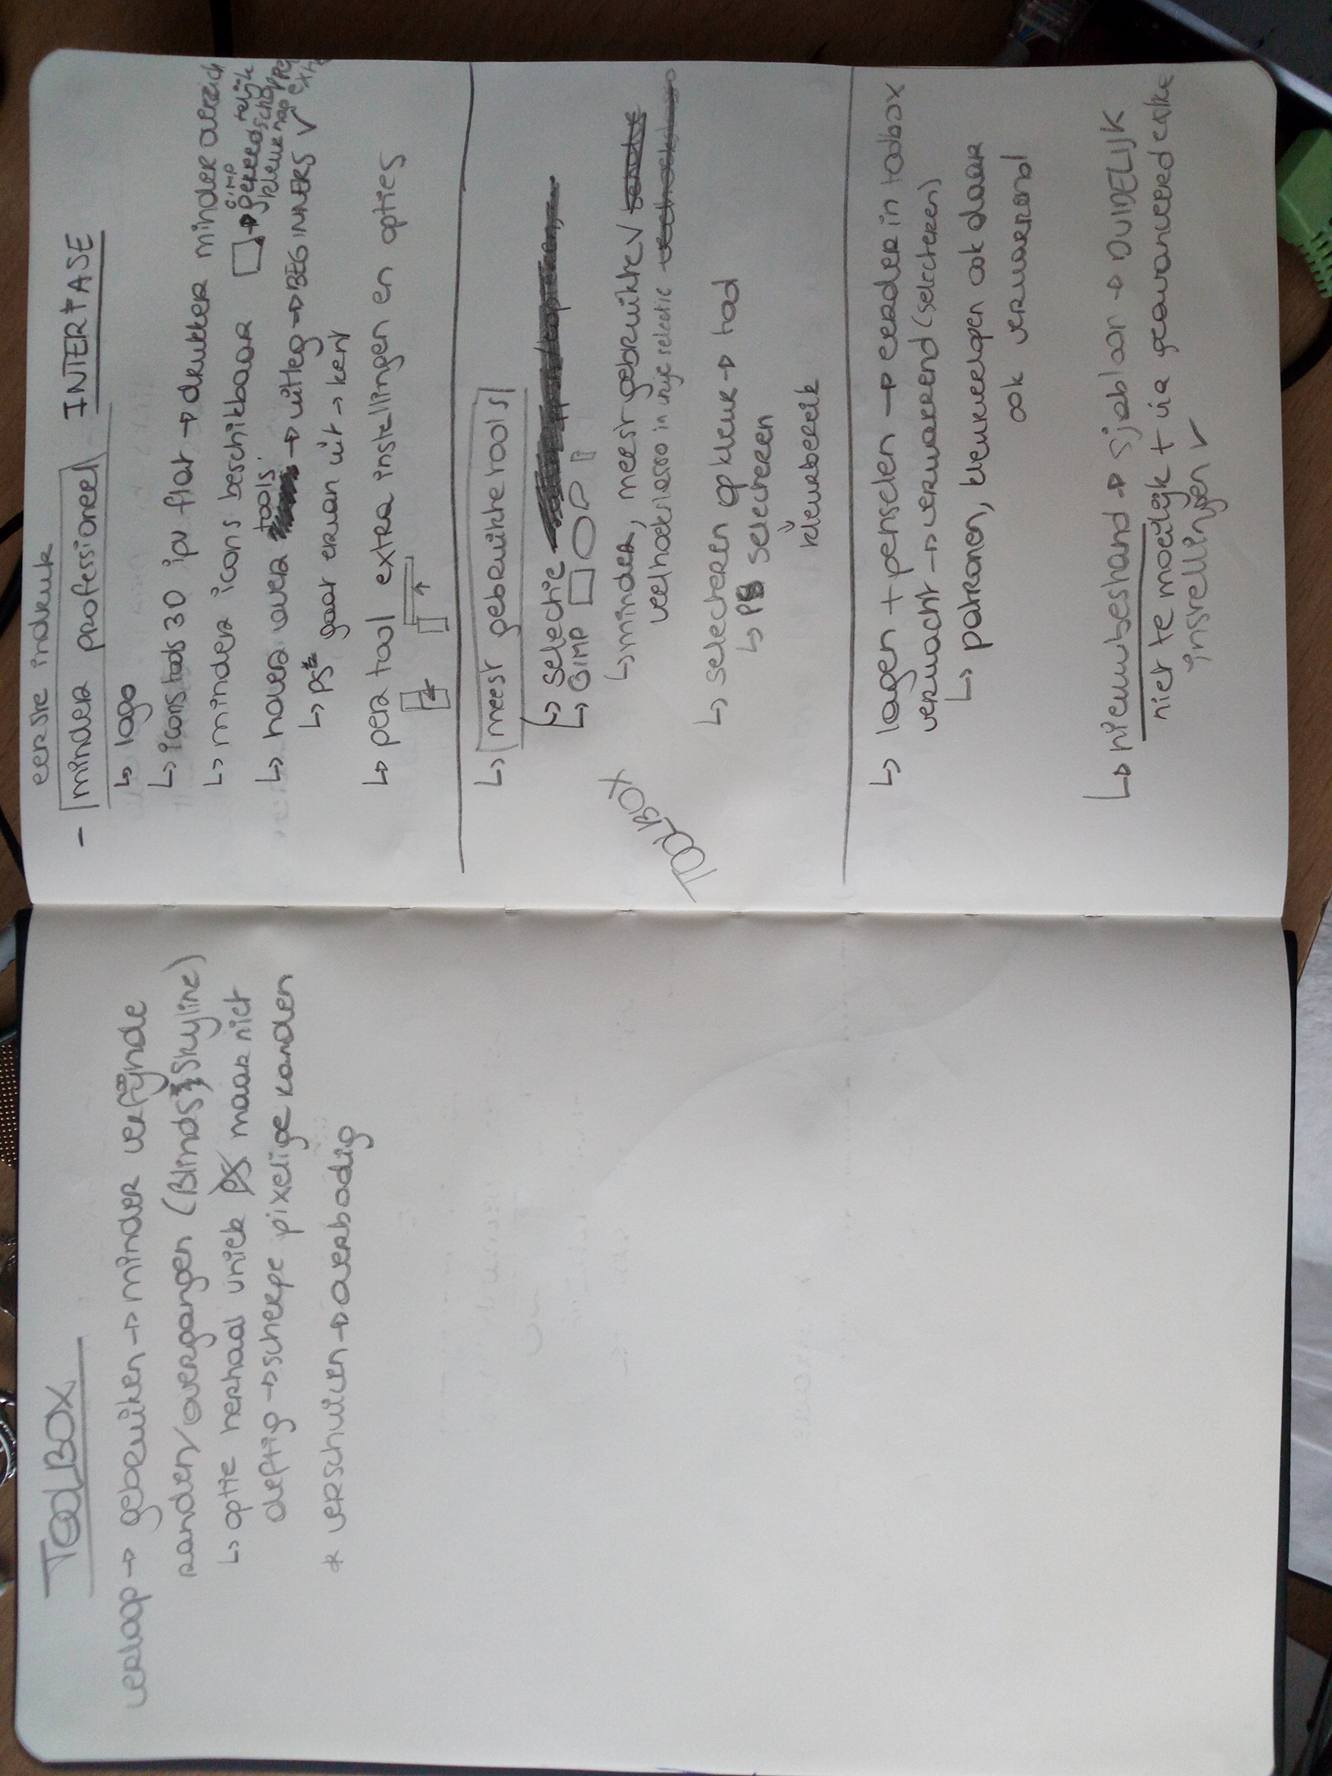 TOOLBOX
verloop → gebruiken → minder verfijnde
randen/overgangen (Blinds Skyline)
↳ optie herhaal uniek PS maar niet
deftig → scherpe pixelige randen
* verschuiven → overbodig
eerste indruk
- minder professioneel INTERFASE
↳ logo
↳ icons tools 3D ipv flat → drukker minder overzich
telijk
↳ minder icons beschikbaar → GIMP
gereedschappen
kleur nog extra
↳ hover over tools → uitleg → BEGINNERS ✓
↳ PS gaat ervan uit → kent
↳ per tool extra instellingen en opties
↳ meest gebruikte tools
↳ selectie
↳ GIMP
↳ minder, meest gebruikte ✓
veelhoekslasso in vrije selectie veelhoekslasso
TOOLBOX
↳ selecteren op kleur → tool
↳ PS selecteren
↓
kleurbereik
↳ lagen + penselen → eerder in toolbox
verwacht → verwarrend (selecteren)
↳ patronen, kleurverlopen ook daar
ook verwarrend
↳ nieuw bestand → sjabloon → DUIDELIJK
niet te moeilijk + via geavanceerd extra
instellingen ✓